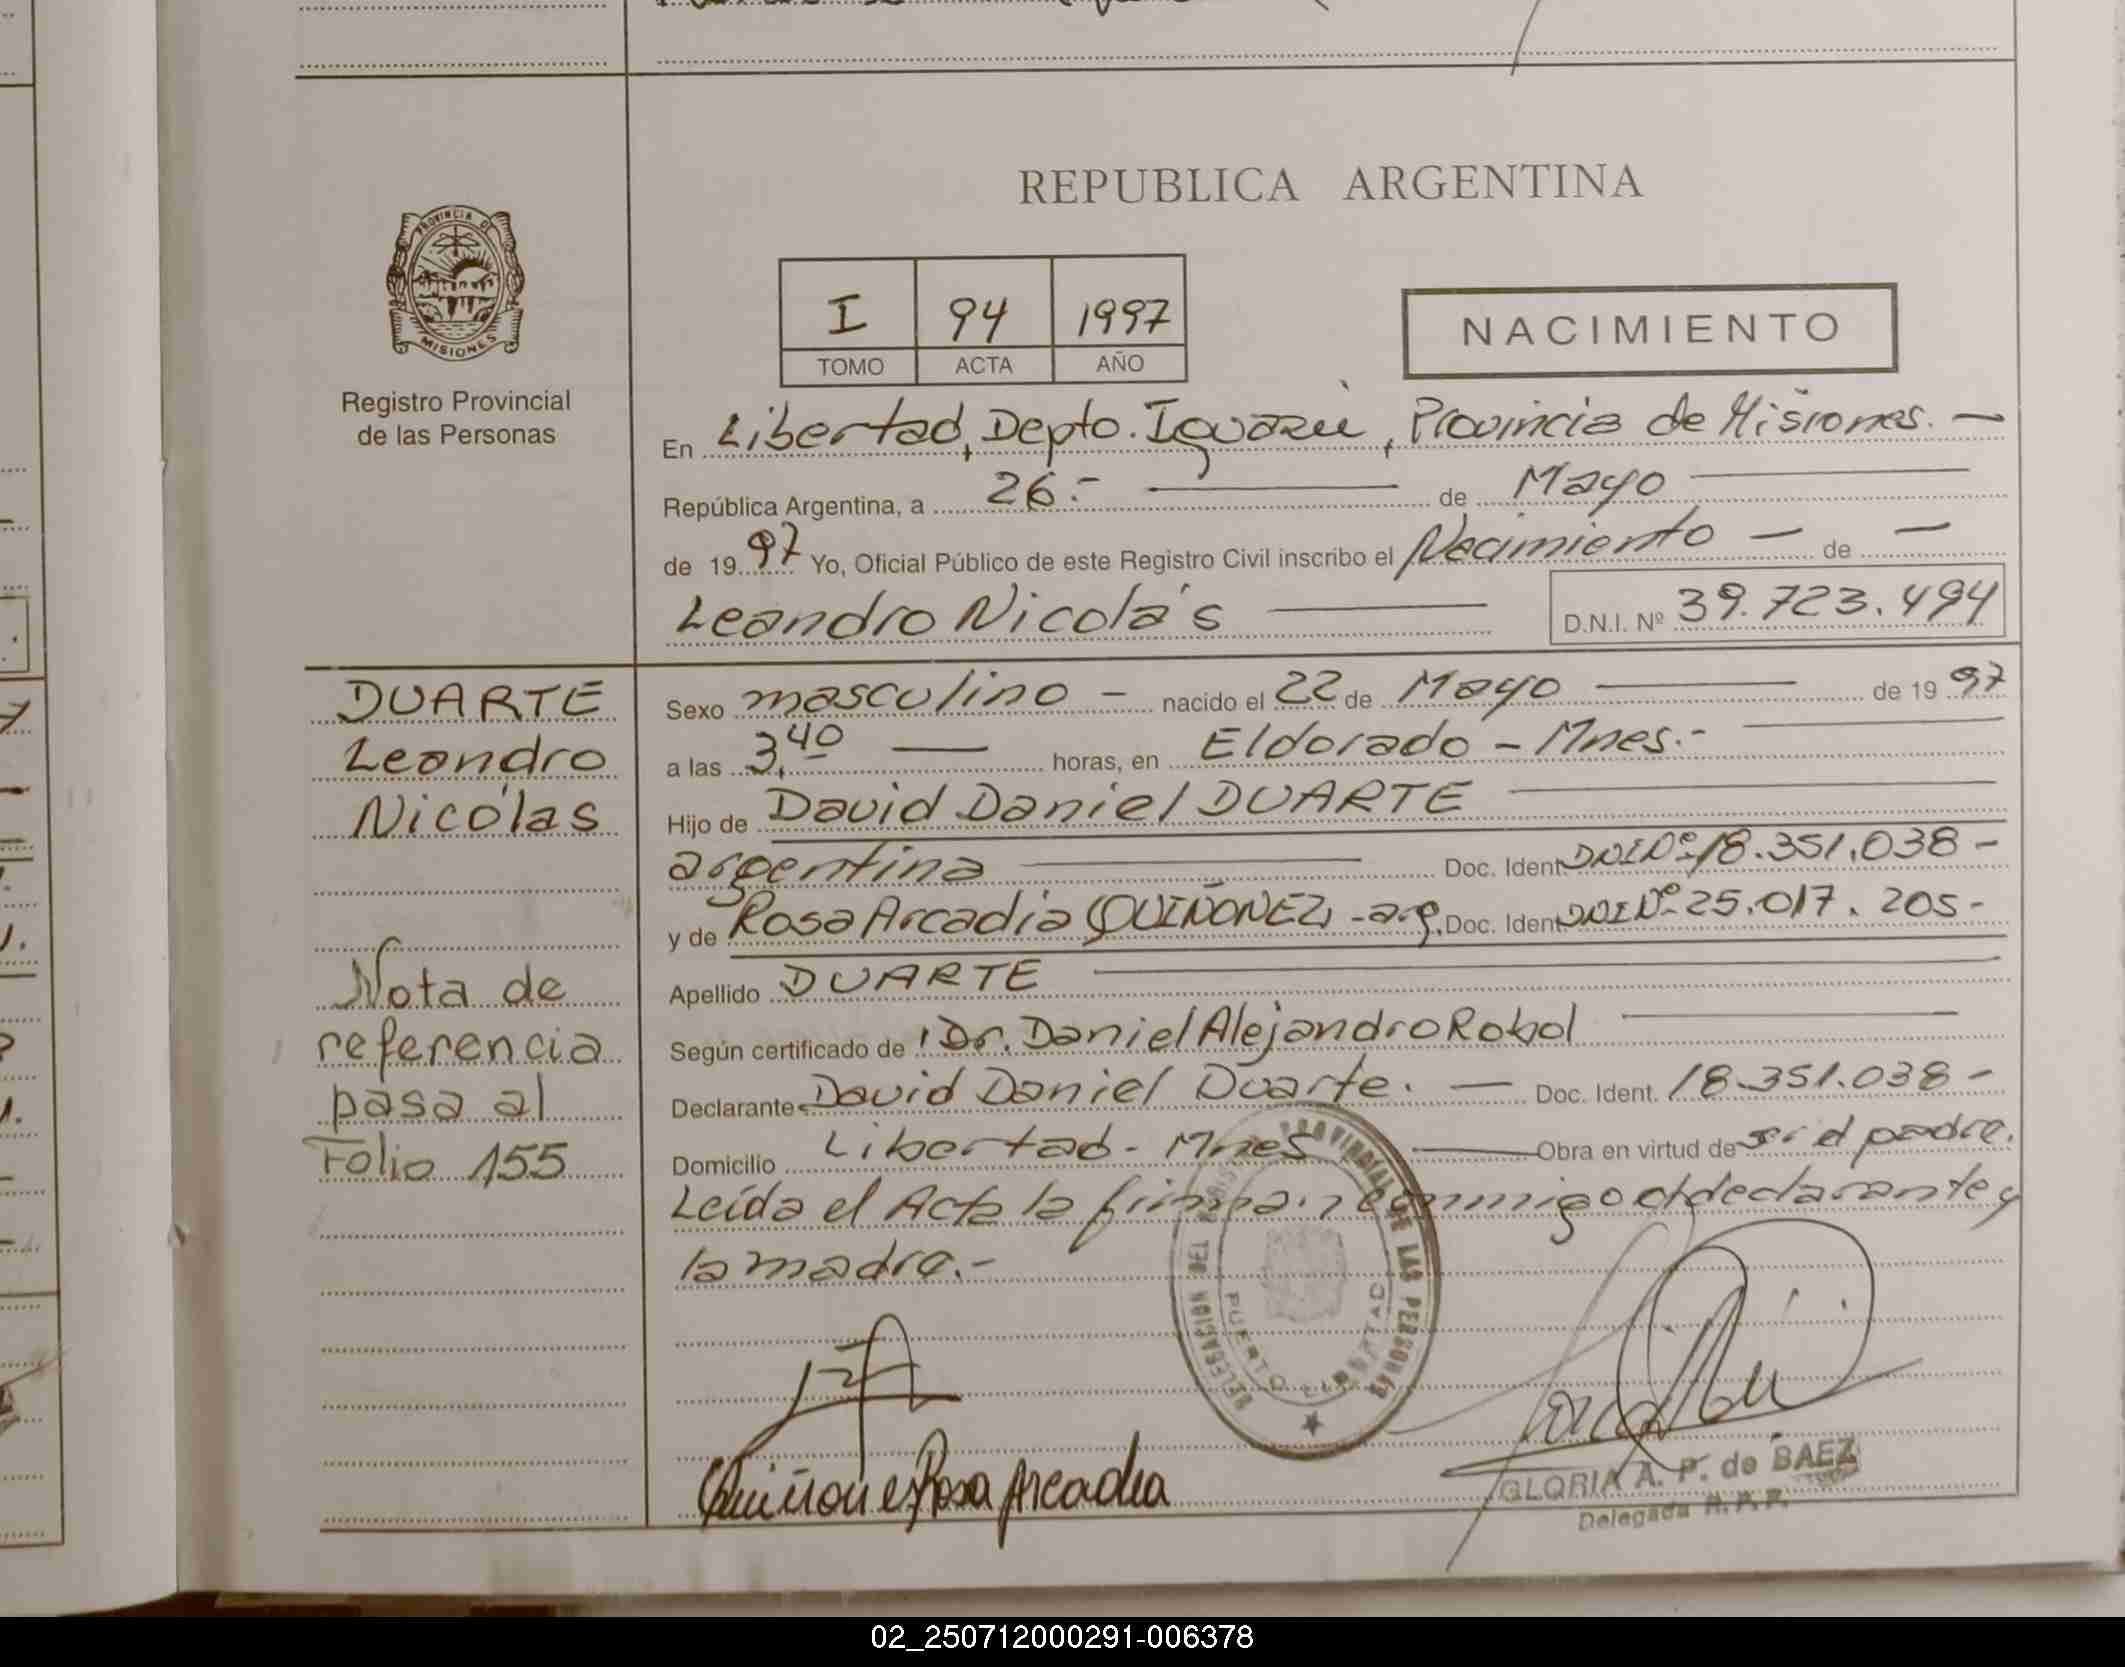 REPUBLICA ARGENTINA
PROVINCIA DE
MISIONES
Registro Provincial
de las Personas
I 94 1997
TOMO ACTA AÑO
NACIMIENTO
En Libertad, Depto. Iguazú, Provincia de Misiones. —
República Argentina, a 26.- — de Mayo —
de 1997 Yo, Oficial Público de este Registro Civil inscribo el Nacimiento — de —
Leandro Nicolás — D.N.I. Nº 39.723.494
DUARTE
Leandro
Nicolás
Nota de
referencia
pasa al
Folio 155
Sexo masculino - nacido el 22 de Mayo — de 1997
a las 3,40 — horas, en Eldorado - Mnes.- —
Hijo de David Daniel DUARTE —
argentina — Doc. Ident. DNI Nº 18.351.038 -
y de Rosa Arcadia QUIÑONEZ, - arg. Doc. Ident. DNI Nº 25.017.205-
Apellido DUARTE —
Según certificado de Dr. Daniel Alejandro Robol —
Declarante David Daniel Duarte. — Doc. Ident. 18.351.038 -
Domicilio Libertad - Mnes — Obra en virtud de ser el padre.
Leída el Acta la firman conmigo el declarante y
la madre.-
DELEGACION DEL REGISTRO PROVINCIAL DE LAS PERSONAS
PUERTO LIBERTAD
Quiñonez Rosa Arcadia
GLORIA A. P. de BAEZ
Delegada R.P.P.
02_250712000291-006378